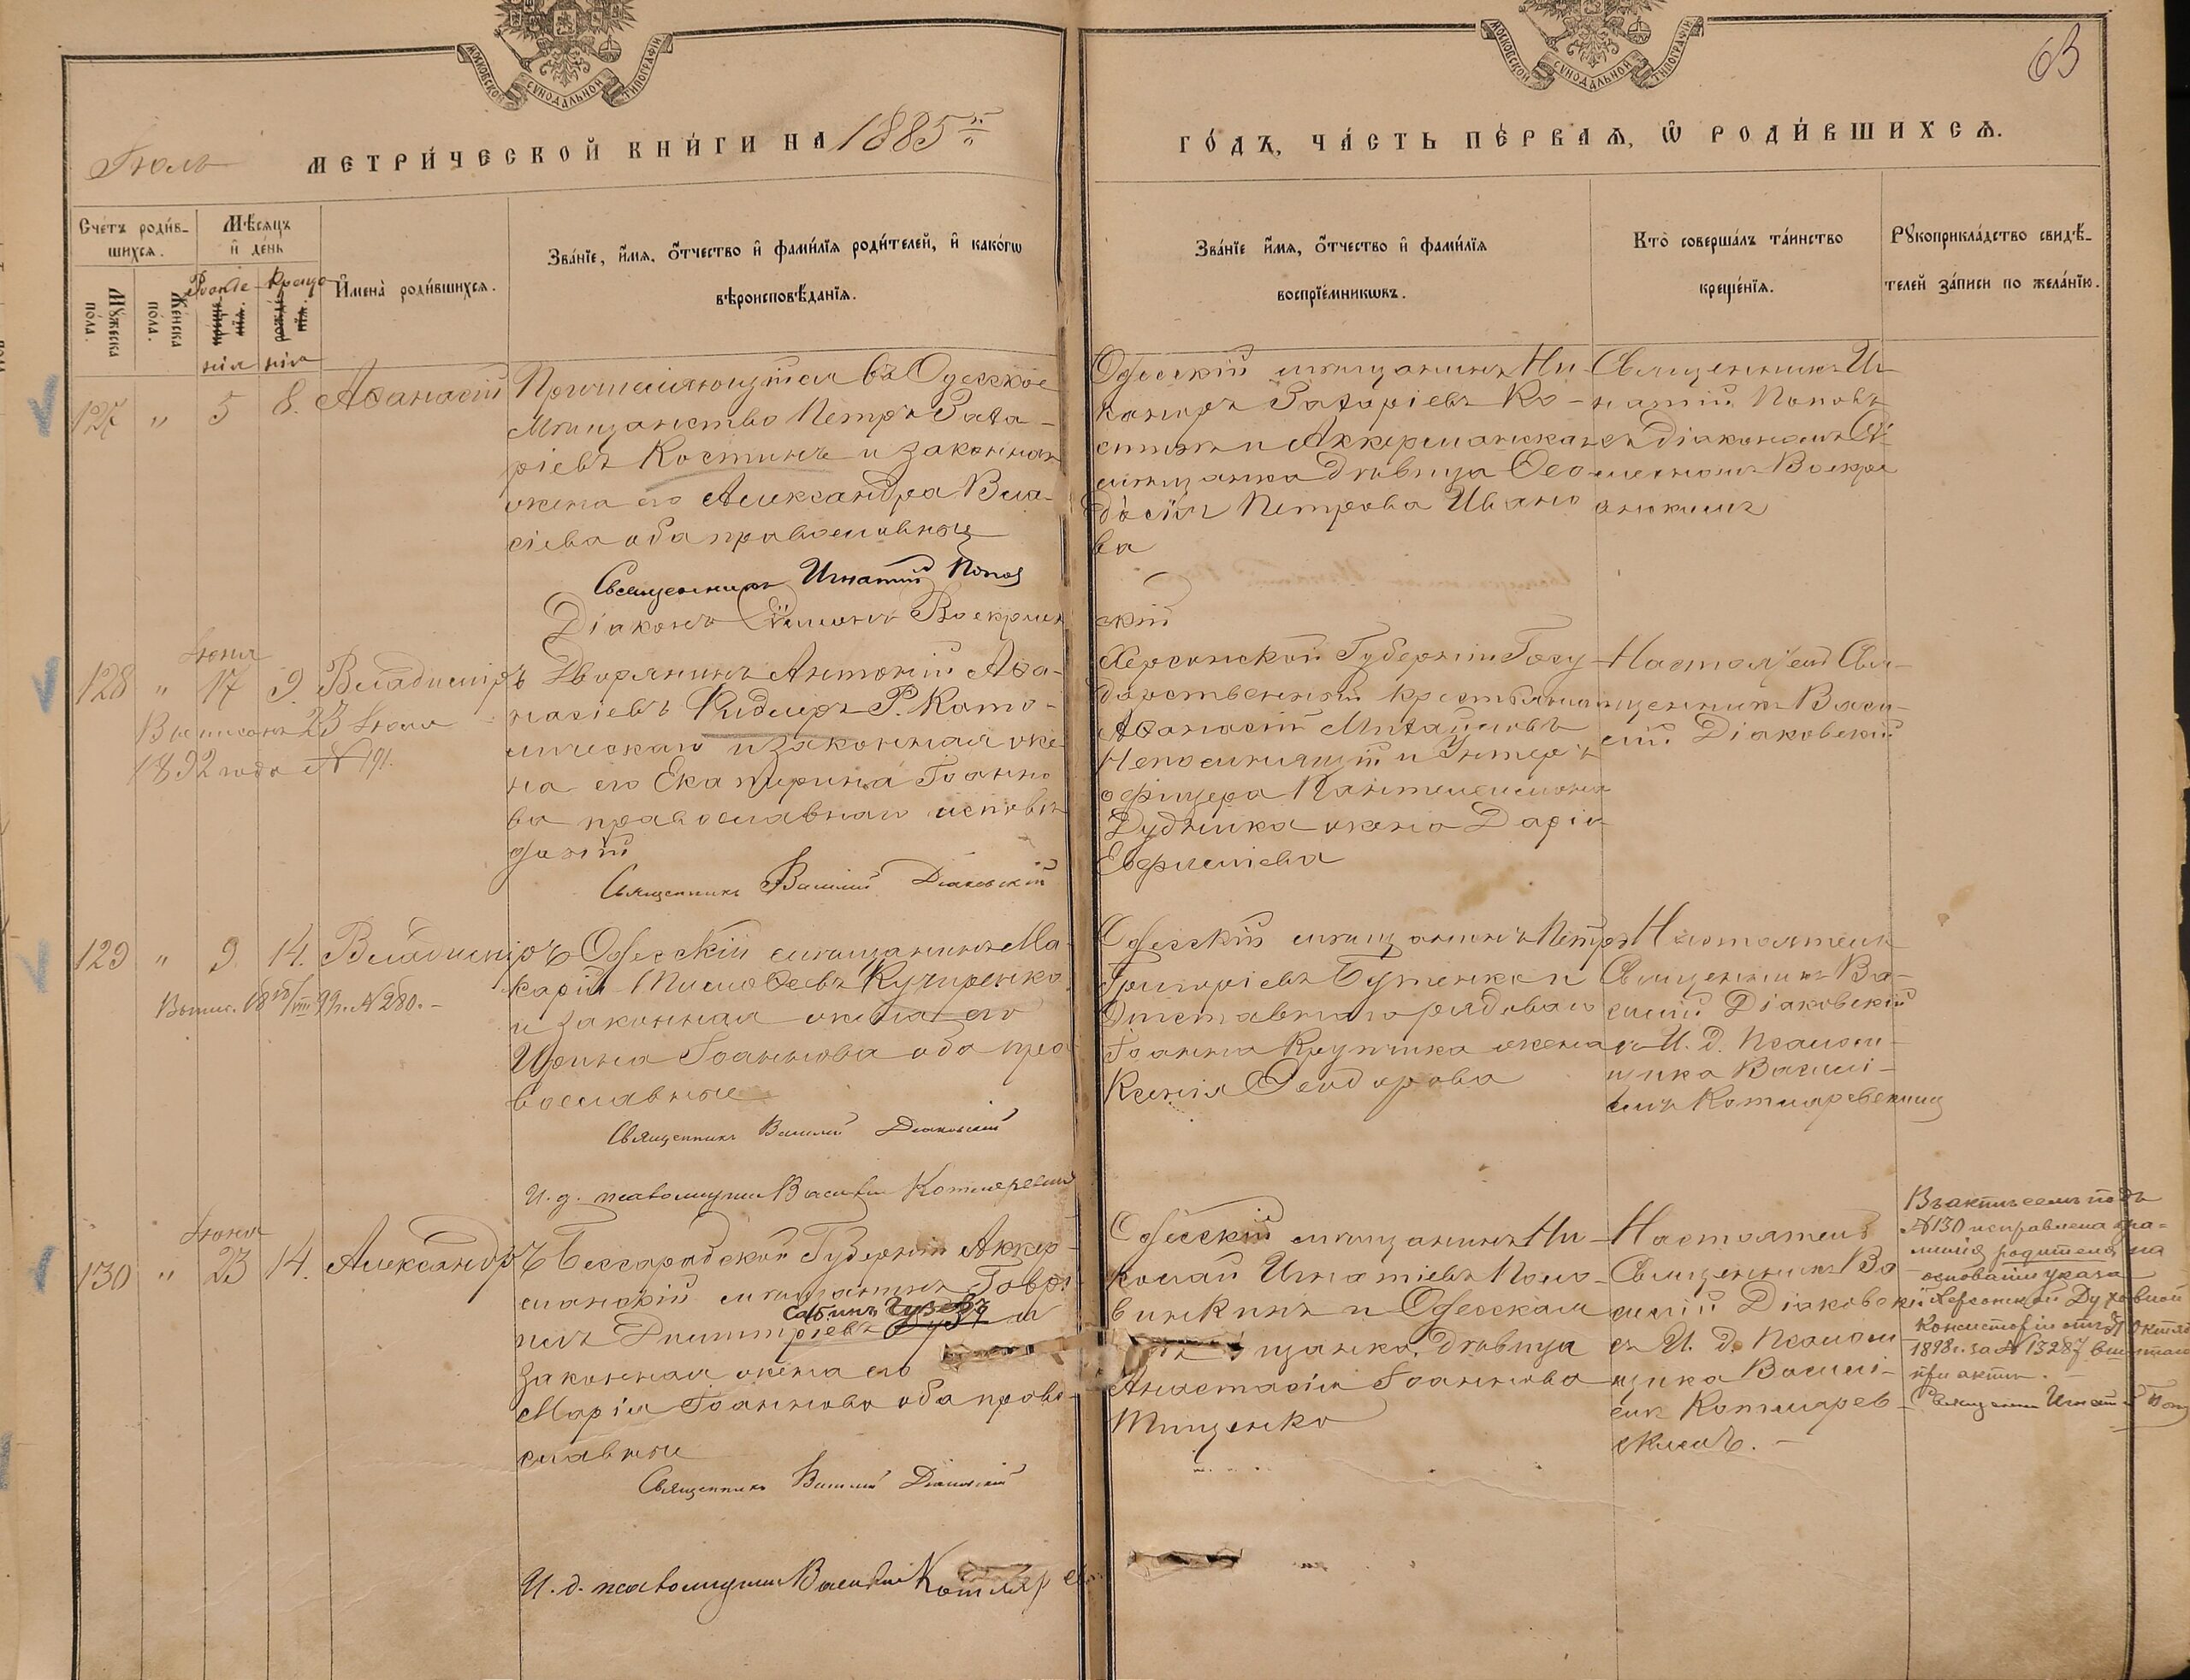 МОСКОВСКОЙ СѴНОДАЛЬНОЙ ТИПОГРАФІИ
МОСКОВСКОЙ СѴНОДАЛЬНОЙ ТИПОГРАФІИ
63
Іюль
МЕТРИ́ЧЕСКОЙ КНИ́ГИ НА 1885
ГО́ДЪ, ЧА́СТЬ ПЕ́РВАѦ, Ѽ РОДИ́ВШИХСѦ.
Сче́тъ роди́в-
шихсѧ.
Мꙋ́жеска
по́ла.
Же́нска
по́ла.
Мѣ́сѧцъ
и҆ де́нь
Рожде-
нія
Креще-
нія
И҆мена̀ роди́вшихсѧ.
Зва́нїе, и҆́мѧ, ѻ҆́тчество и҆ фами́лїѧ роди́телей, и҆ како́гѡ
вѣроисповѣ́данїѧ.
Зва́нїе и҆́мѧ, ѻ҆́тчество и҆ фами́лїѧ
воспрїе́мникѡвъ.
Кто̀ соверша́лъ та́инство
креще́нїѧ.
Рꙋкоприкла́дство свидѣ́-
телей за́писи по жела́нїю.
127 " 5 8. Аѳанасій
Причисляющійся въ Одесское
Мѣщанство Петръ Заха-
ріевъ Костинъ и законная
жена его Александра Вла-
сіева оба православные
Священникъ Игнатій Попов
Діаконъ Симеонъ Воскресен
скій
Одесскій мѣщанинъ Ни-
каноръ Захаріевъ Ко-
стинъ и Аккерманская
мѣщанка дѣвица Ѳео
досія Петрова Ивано
ва
Священникъ Иг-
натій Поповъ
съ діакономъ Си-
меономъ Воскре
Іюня
128 " 17 9. Владиміръ
Выписанъ 23 Іюля
1892 года № 191.
Дворянинъ Антоній Аѳа-
насіевъ Р. Като-
лическаго и законная же-
на его Екатерина Іоанно
ва православнаго исповѣ
даній
Священникъ Василій Діаковскій
Херсонской Губерніи Госу-
дарственный крестьянин
Аѳанасій Михайловъ
и Унтеръ
офицера Пантелеимона
Дудника жена Дарія
Евфиміева
Настоятель Свя-
щенникъ Васи-
лій Діаковскій
129 " 9 14. Владиміръ
Выпис. 18 /VIII 99 г. № 280.-
Одесскій мѣщанинъ Ма-
карій Тимоѳеевъ Кучеренко
и законная жена его
Ирина Іоаннова оба пра
вославные
Священникъ Василій Діаковскій
И. д. псаломщика Василій Котляревскій
Одесскій мѣщанинъ Петръ
Григоріевъ Бутенко и
Отставного рядоваго
Іоанна Крупника жена
Ксенія Ѳеодорова
Настоятель
Священникъ Ва-
силій Діаковскій
съ И. д. Псалом-
щика Василі-
емъ Котляревскимъ
Іюня
130 " 23 14. Александръ
Бессарабской Губерніи Аккер-
манскій мѣщанинъ Гаврі-
илъ Дмитріевъ и
законная жена его
Марія Іоаннова оба право-
славные
Священникъ Василій Діаковскій
И. д. псаломщика Василій Котляревс
Одесскій мѣщанинъ Ни-
колай Игнатіевъ Поло-
винкинъ и Одесская
мѣщанка, дѣвица
Анастасія Іоаннова
Тищенко
Настоятель
Священникъ Ва
силій Діаковскій
съ И. д. Псалом-
щика Василі-
емъ Котлярев-
скимъ. -
Въ актѣ семъ подъ
№ 130 исправлена фа-
милія родителя на
основаніи указа
Херсонской Духовной
Консисторіи отъ Октяб
1898 г. за № 13287
при актѣ. -
Священникъ Игнатій Попов